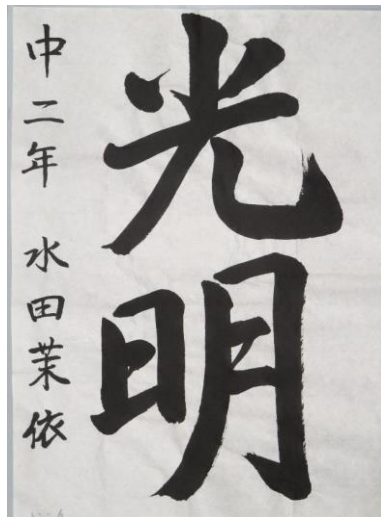 光明
中二年 水田茉依